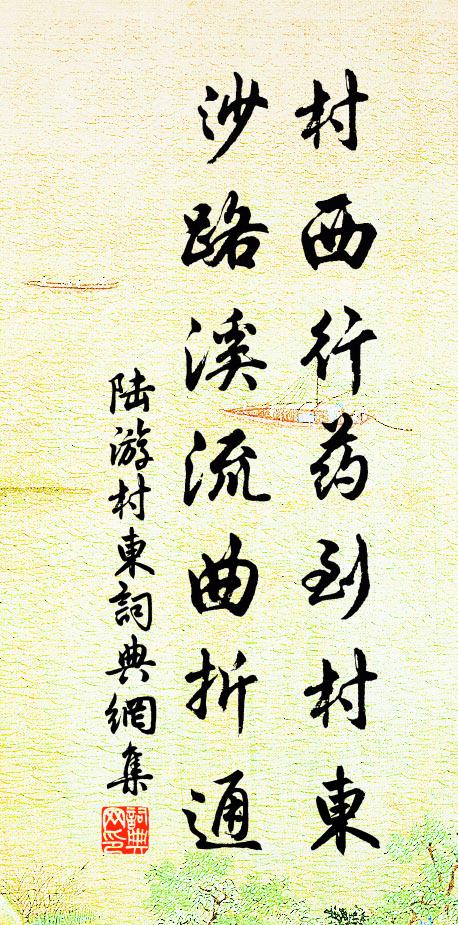 村西行药到村東
沙路溪流曲折通
陆游村東詞典網集
詞典网印